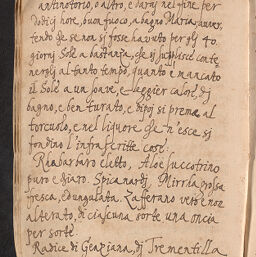 antinotorio, o altro, e darij nel fine per
Dodici hore, buon fuoco, a bagno Maria, auuer,
tendo che se non si fosse hauuto per gli 40.
giorni Sole a bastanza, che si supplisce conte
nergli altanto tempo, quanto è mancato
il Sole a un soaue, e leggier calor di
bagno, e ben turato, e dipoi si prema al
torcuolo, e nel liquore che n'esce si
fondino l'infrascritte cose.
Riabarbaro eletto, Aloe succotrino
puro e chiaro. Spicanardi, Mirrha grossa
fresca, ed ungulata. Zafferano vero e non
alterato, di ciascuna sorte una oncia
per sorte.
Radice di Genziana, di Trementilla